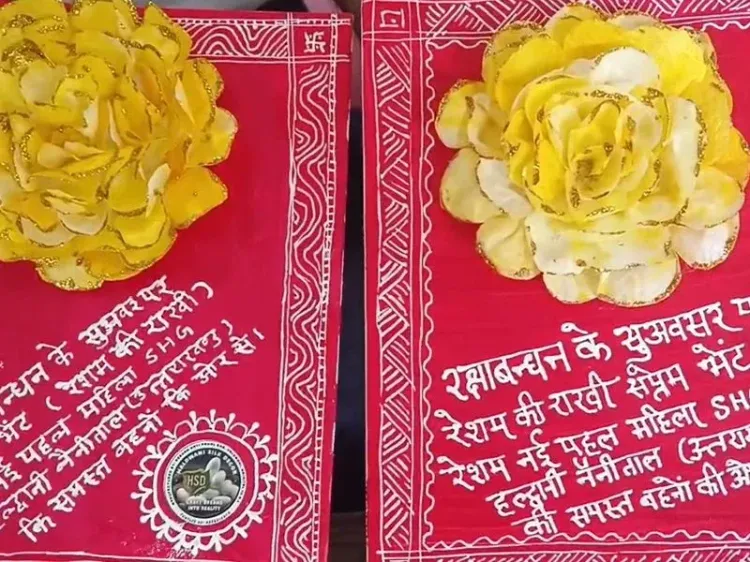 न्धन के सुअवसर पर
भेंट (रेशम की राखी)
पहल महिला SHG
नैनीताल (उत्तराखण्ड)
कि समस्त बहनों कि ओर से।
HALDWANI SILK DECOR
HSD
CRAFT DREAMS
INTO REALITY
रक्षाबन्धन के सुअवसर प
रेशम की राखी सप्रेम भेंट
रेशम नई पहल महिला SH
हल्द्वानी नैनीताल (उत्तरा
की समस्त बहनों की ओ